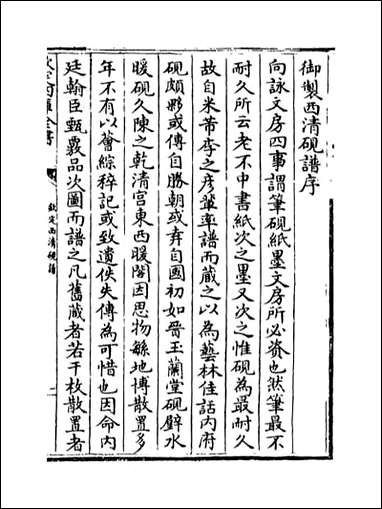 御製西清硯譜序
向詠文房四事謂筆硯紙墨文房所必資也然筆最不
耐久所云老不中書紙次之墨又次之惟硯為最耐久
故自米芾李之彥輩率譜而藏之以為藝林佳話内府
硯頗夥或傳自勝朝或弆自國初如晉玉蘭堂硯璧水
暖硯久陳之乾清宫東西暖閣因思物緐地博散置多
年不有以薈綜稡記或致遺佚失傳為可惜也因命内
廷翰臣甄覈品次圖而譜之凡舊藏者若干枚散置者
欽定西清硯譜